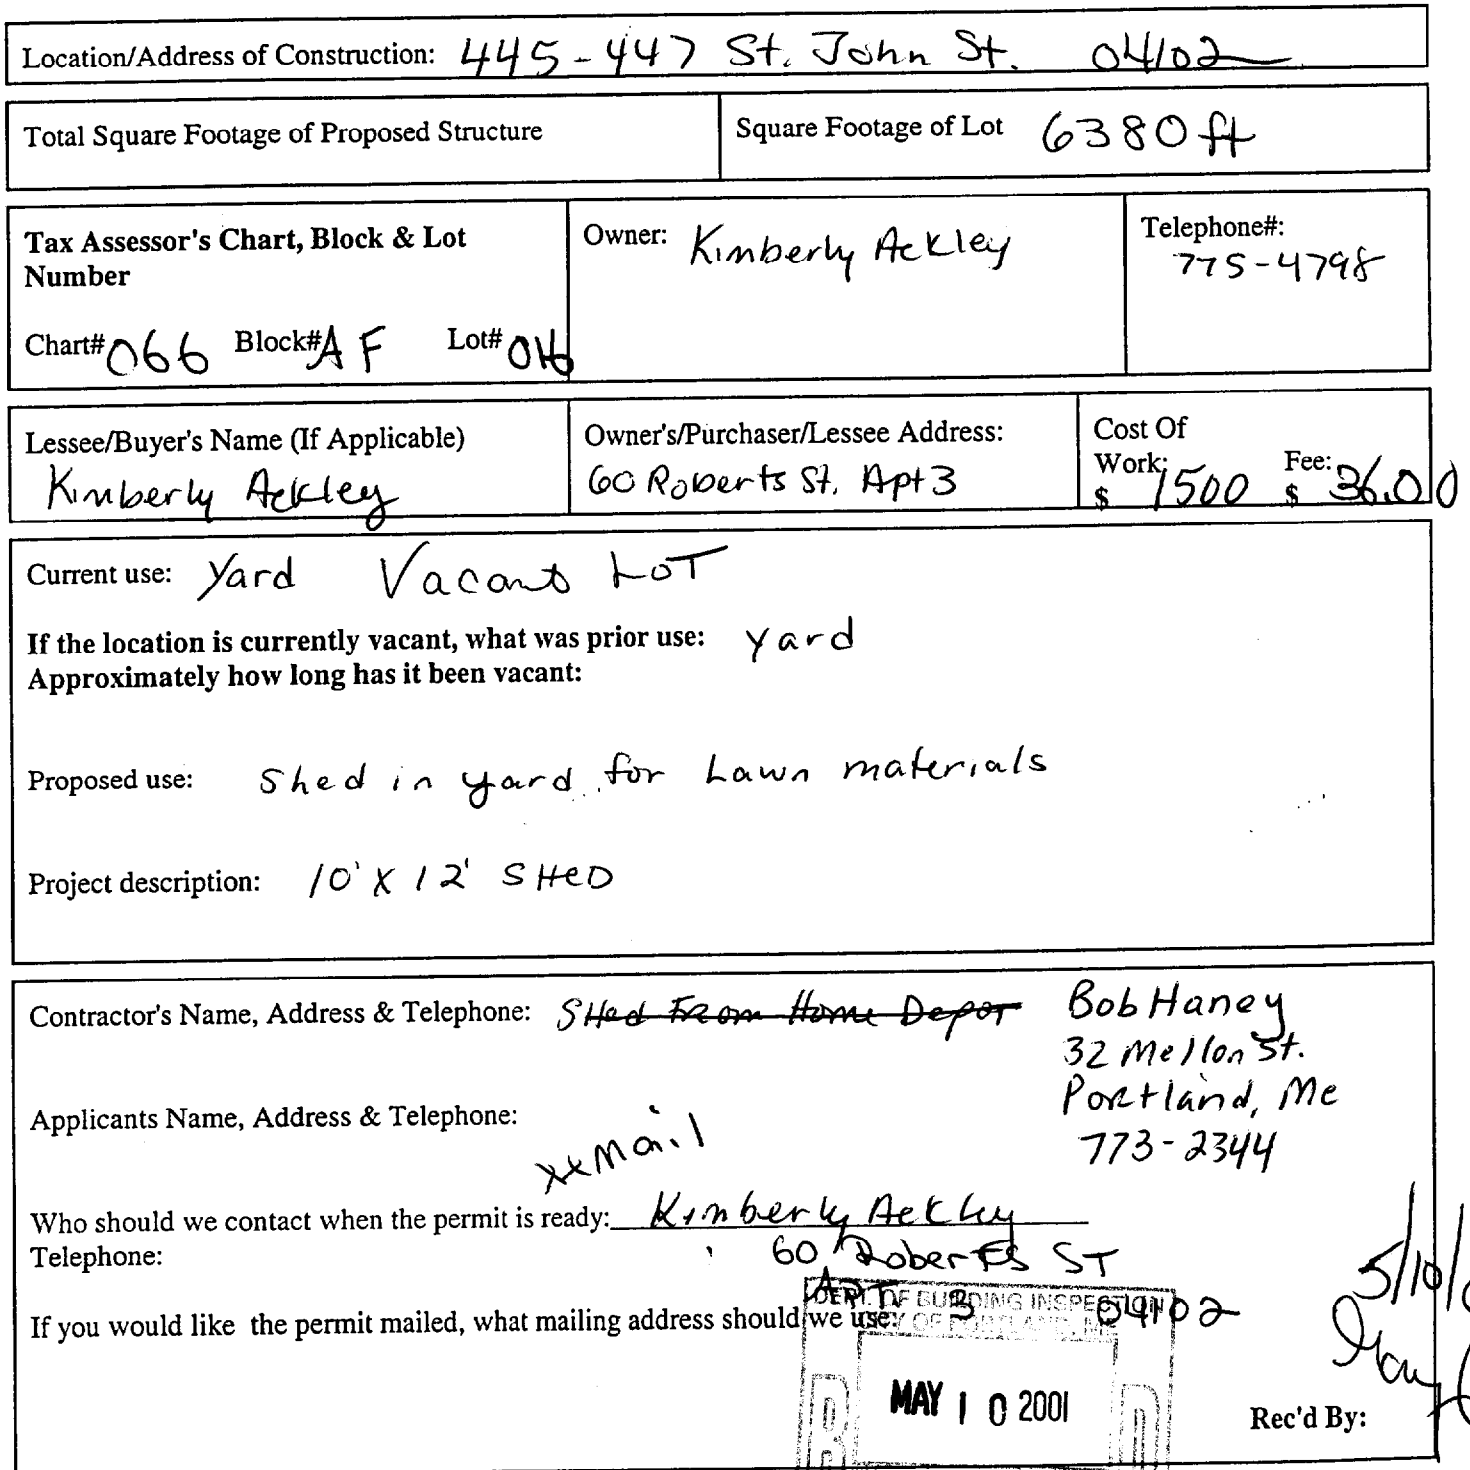 Location/Address of Construction: 445-447 St. John St. 04102
Total Square Footage of Proposed Structure
Square Footage of Lot 6380 ft
Tax Assessor's Chart, Block & Lot
Number
Chart# 066 Block# AF Lot# 016
Owner: Kimberly Ackley
Telephone#:
775-4798
Lessee/Buyer's Name (If Applicable)
Kimberly Ackley
Owner's/Purchaser/Lessee Address:
60 Roberts St. Apt 3
Cost Of
Work: Fee:
$ 1500 $ 36.00
Current use: Yard Vacant LoT
If the location is currently vacant, what was prior use: yard
Approximately how long has it been vacant:
Proposed use: Shed in yard for Lawn materials
Project description: 10' X 12' SHeD
Contractor's Name, Address & Telephone: SHed From Home Depot Bob Haney
32 Mellon St.
Portland, Me
773-2344
Applicants Name, Address & Telephone:
**Mail
Who should we contact when the permit is ready: Kimberly Ackley
Telephone:
60 Roberts ST
APT 3 04102
If you would like the permit mailed, what mailing address should we use:
DEPT. OF BUILDING INSPECTION
CITY OF PORTLAND, ME
MAY 10 2001
5/10/
Rec'd By: